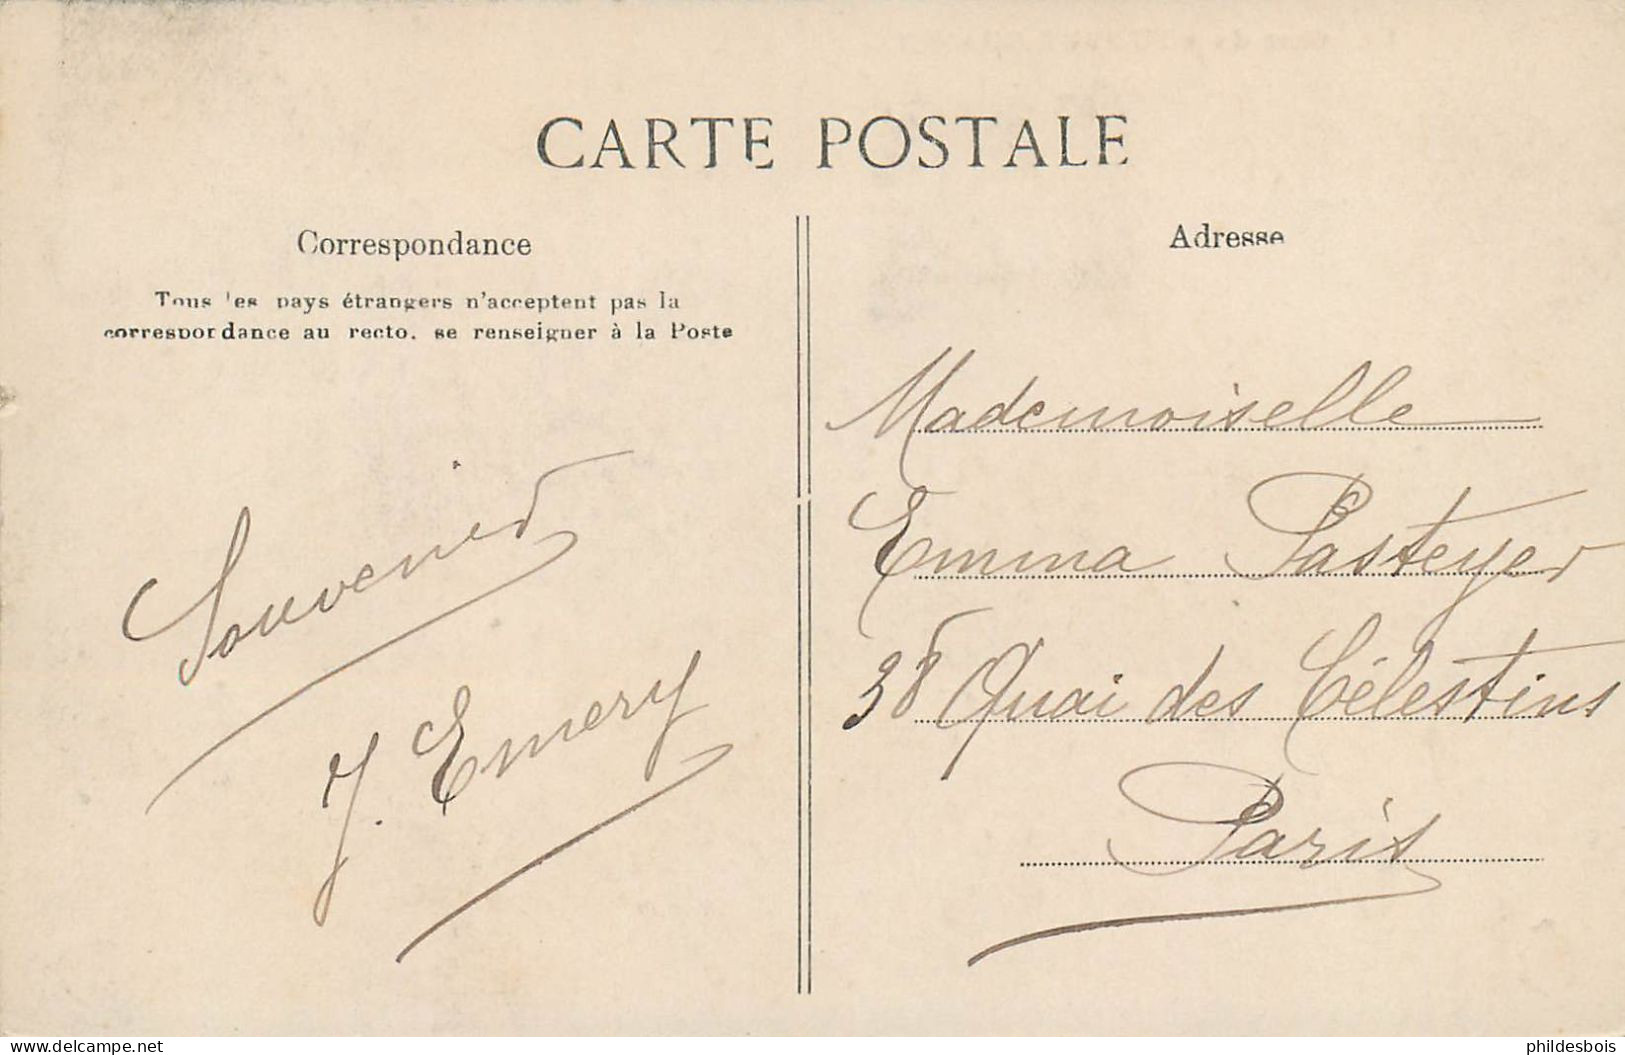 CARTE POSTALE
Correspondance
Tous les pays étrangers n'acceptent pas la
correspondance au recto, se renseigner à la Poste
Souvenir
J. Emery
Adresse
Mademoiselle
Emma Pasteyer
38 Quai des Célestins
Paris
delcampe.net
phildesbois